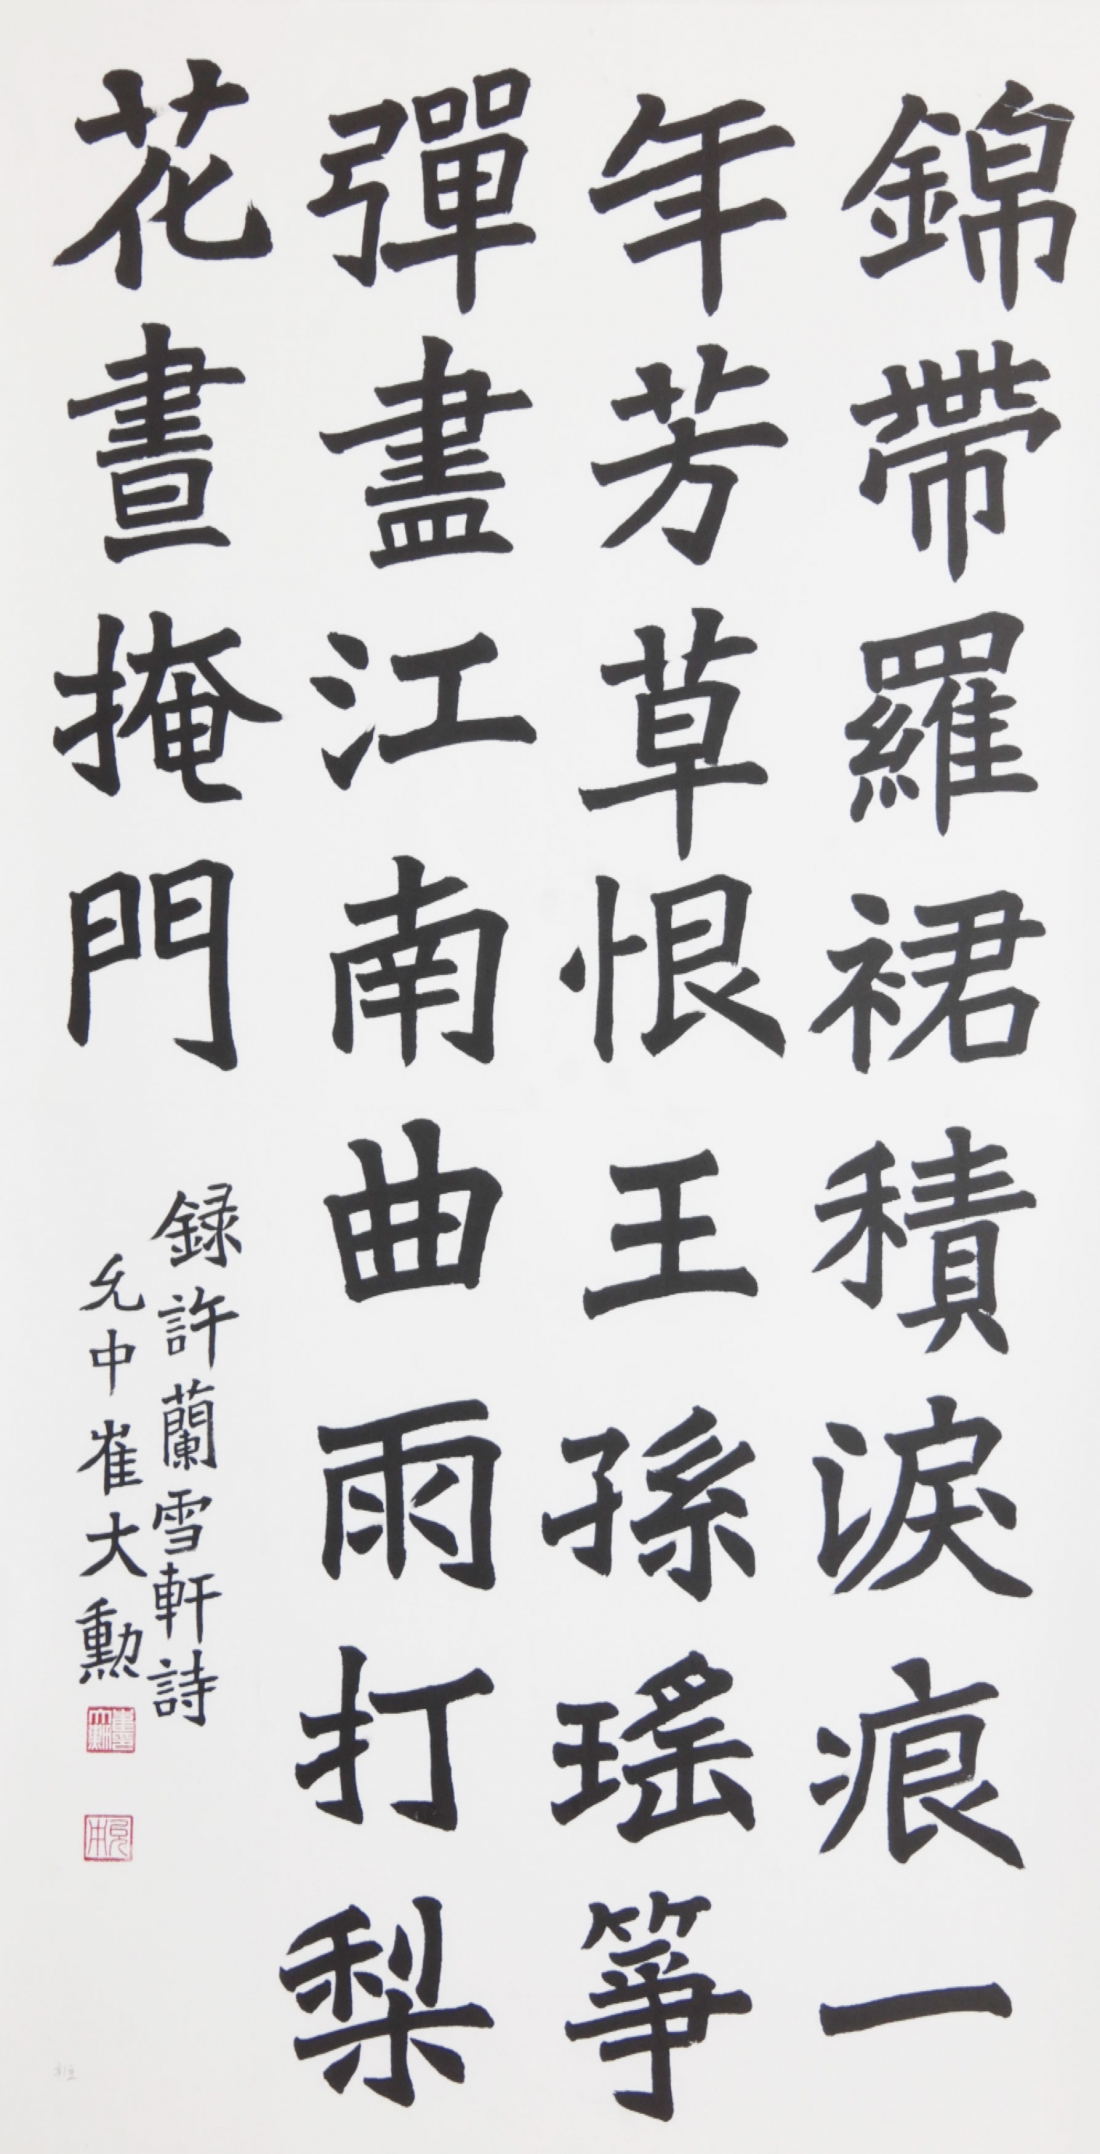 錦帶羅裙積淚痕一
年芳草恨王孫瑤箏
彈盡江南曲雨打梨
花晝掩門
録許蘭雪軒詩
允中崔大勳